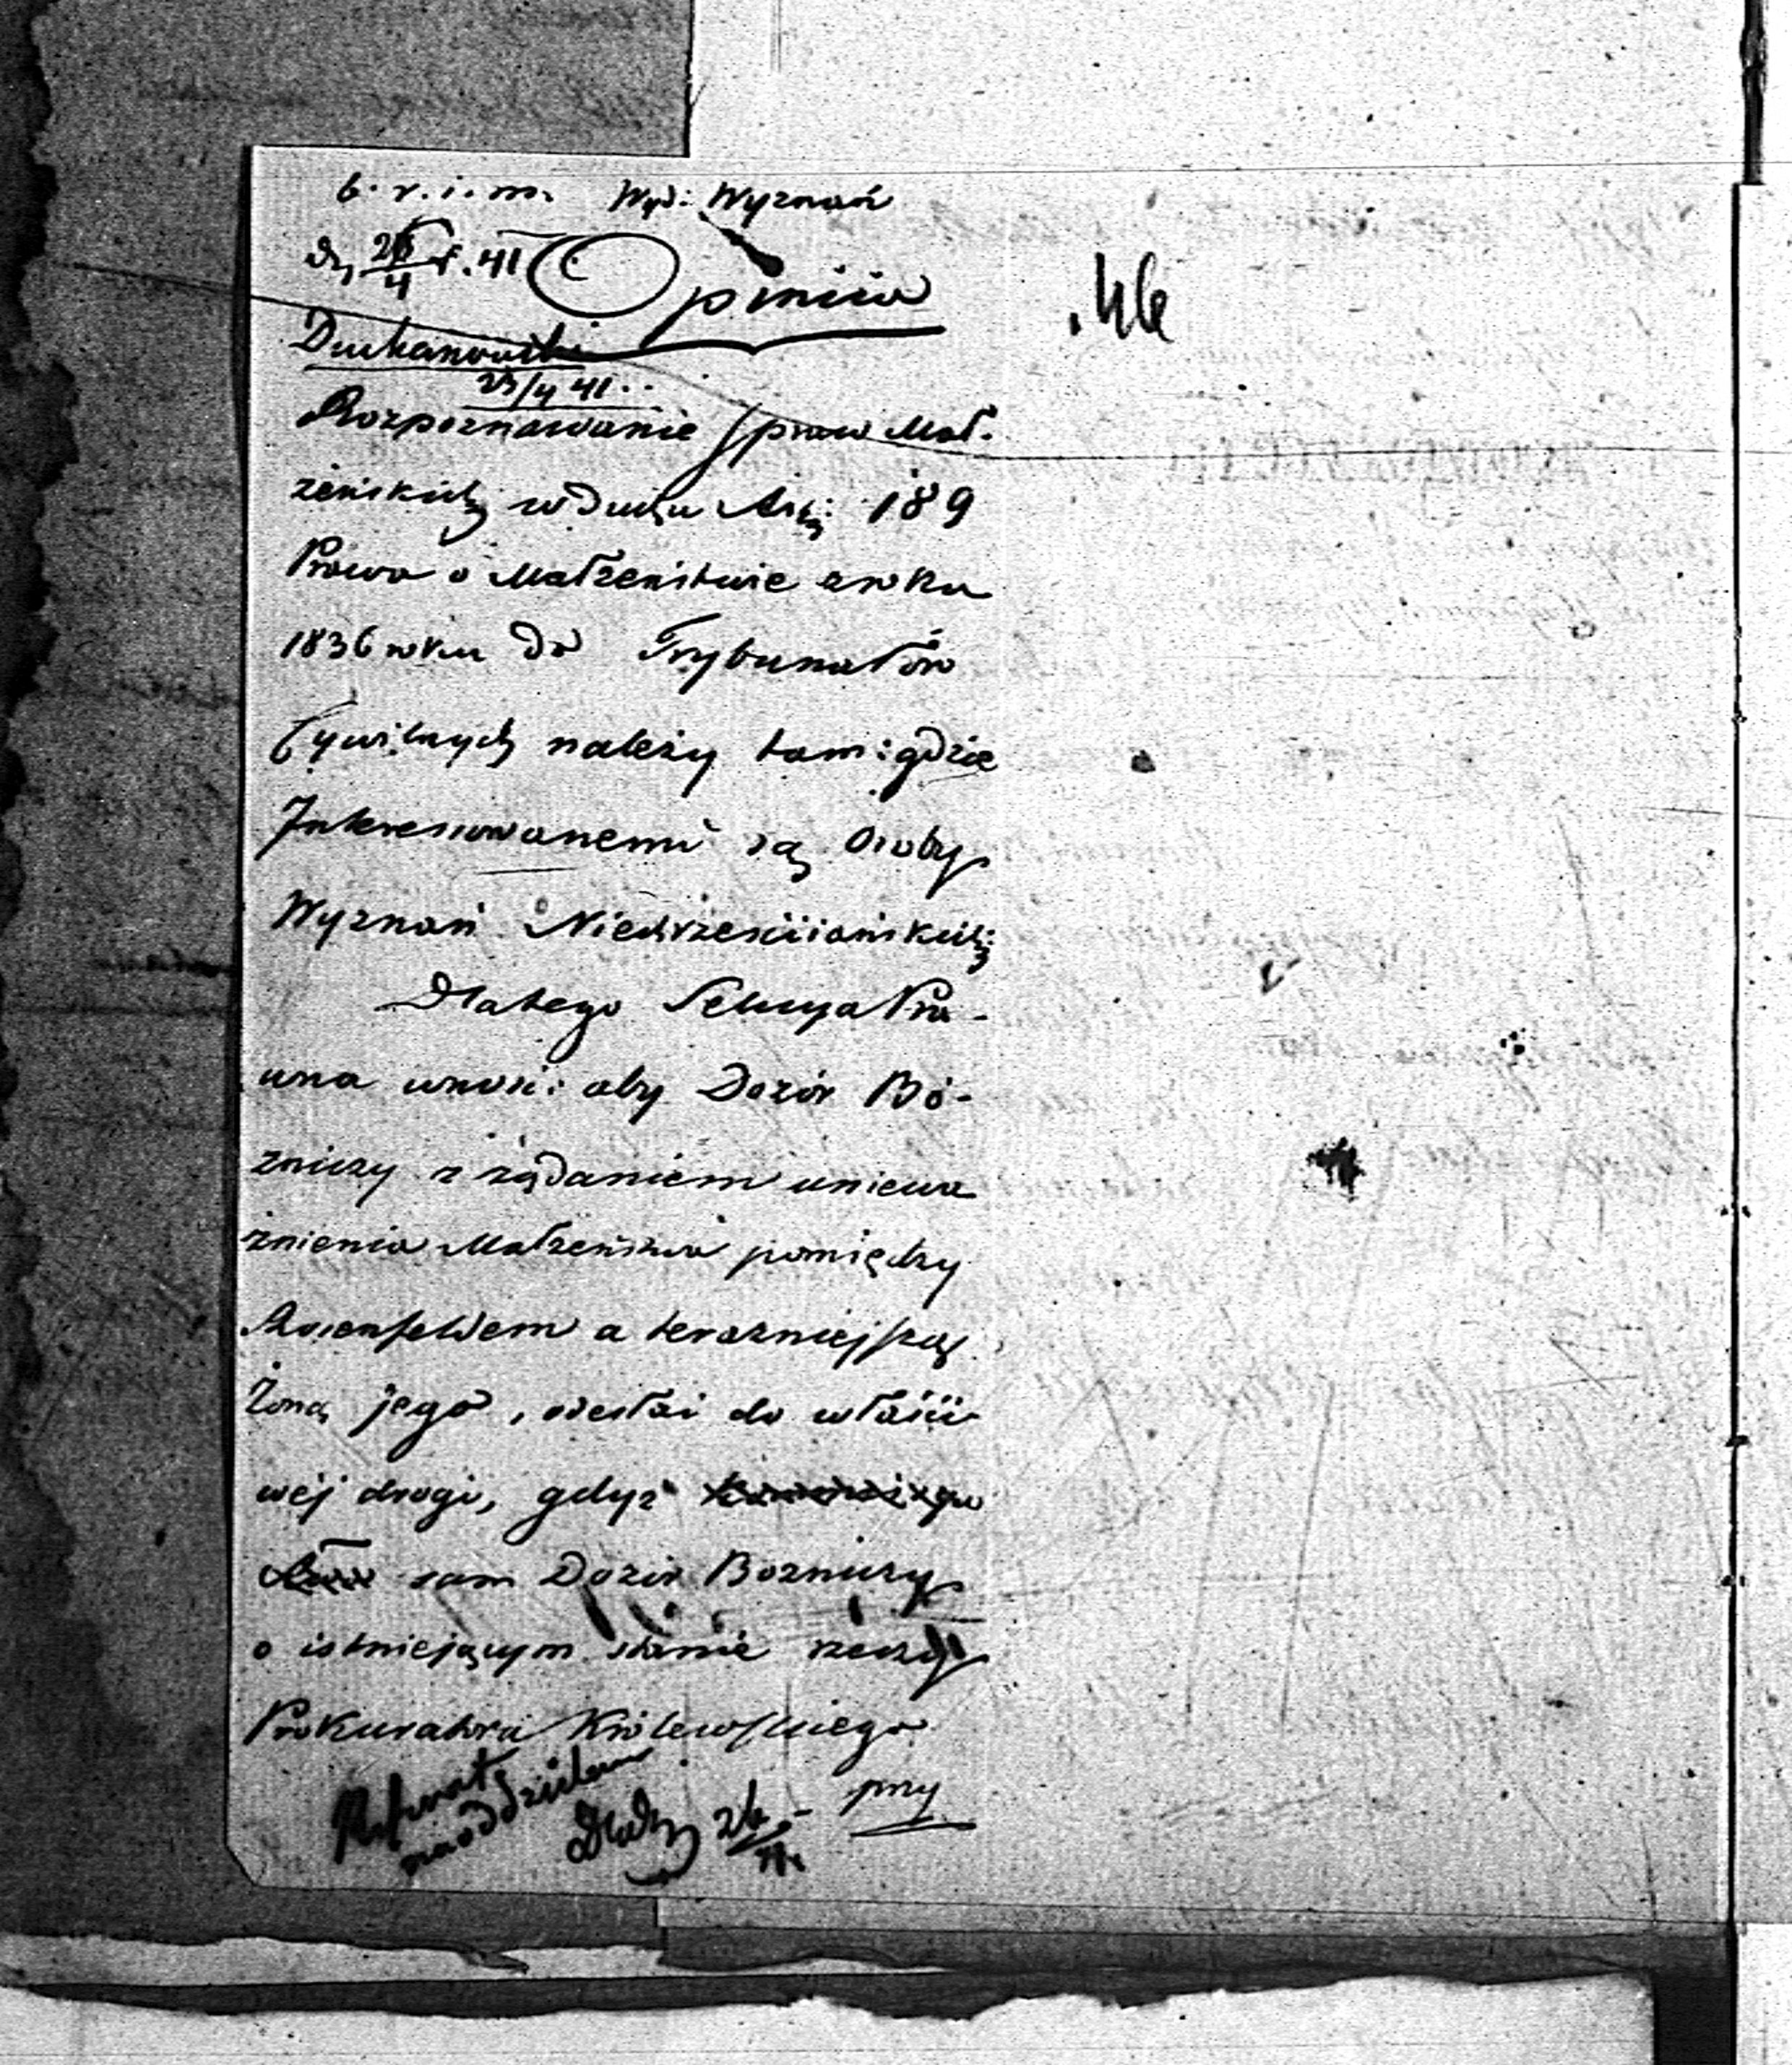 b. r. i. m. Wyd: Wyznań
Opinia
46
Duchanowski
23/4 41.
Rozpoznawanie spraw Mał-
żeńskich w duchu Art: 189
Prawa o Małżeństwie z roku
1836 roku do Trybunałów
Cywilnych należy tam: gdzie
Interessowanemi są Osoby
Wyznań Niechrześciiańskich:
Dlatego Sekcya Pra-
wna wnosi: aby Dozór Bó-
żniczy z żądaniem uniewa
żnienia Małżeństwa pomiędzy
Rosenfeldem a teraźniejszą
Żoną jego, odesłać do właści-
wej drogi, gdyż
sam Dozór Bożniczy
o istniejącym stanie rzeczy
Prokuratora Królewskiego
przy
26